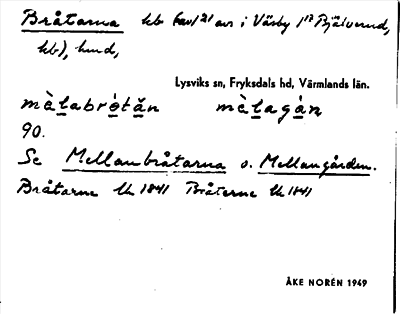 Bråtarna hb (av 1/21 av i Väsby 1/17 Bjälverud,
hb), hmd,
Lysviks sn, Fryksdals hd, Värmlands län.
mèlabrètăn mèlagàn
90.
Se Mellanbråtarna o. Mellangården.
Bråtarne Uk 1841 Bråterne Uk 1841
ÅKE NORÉN 1949